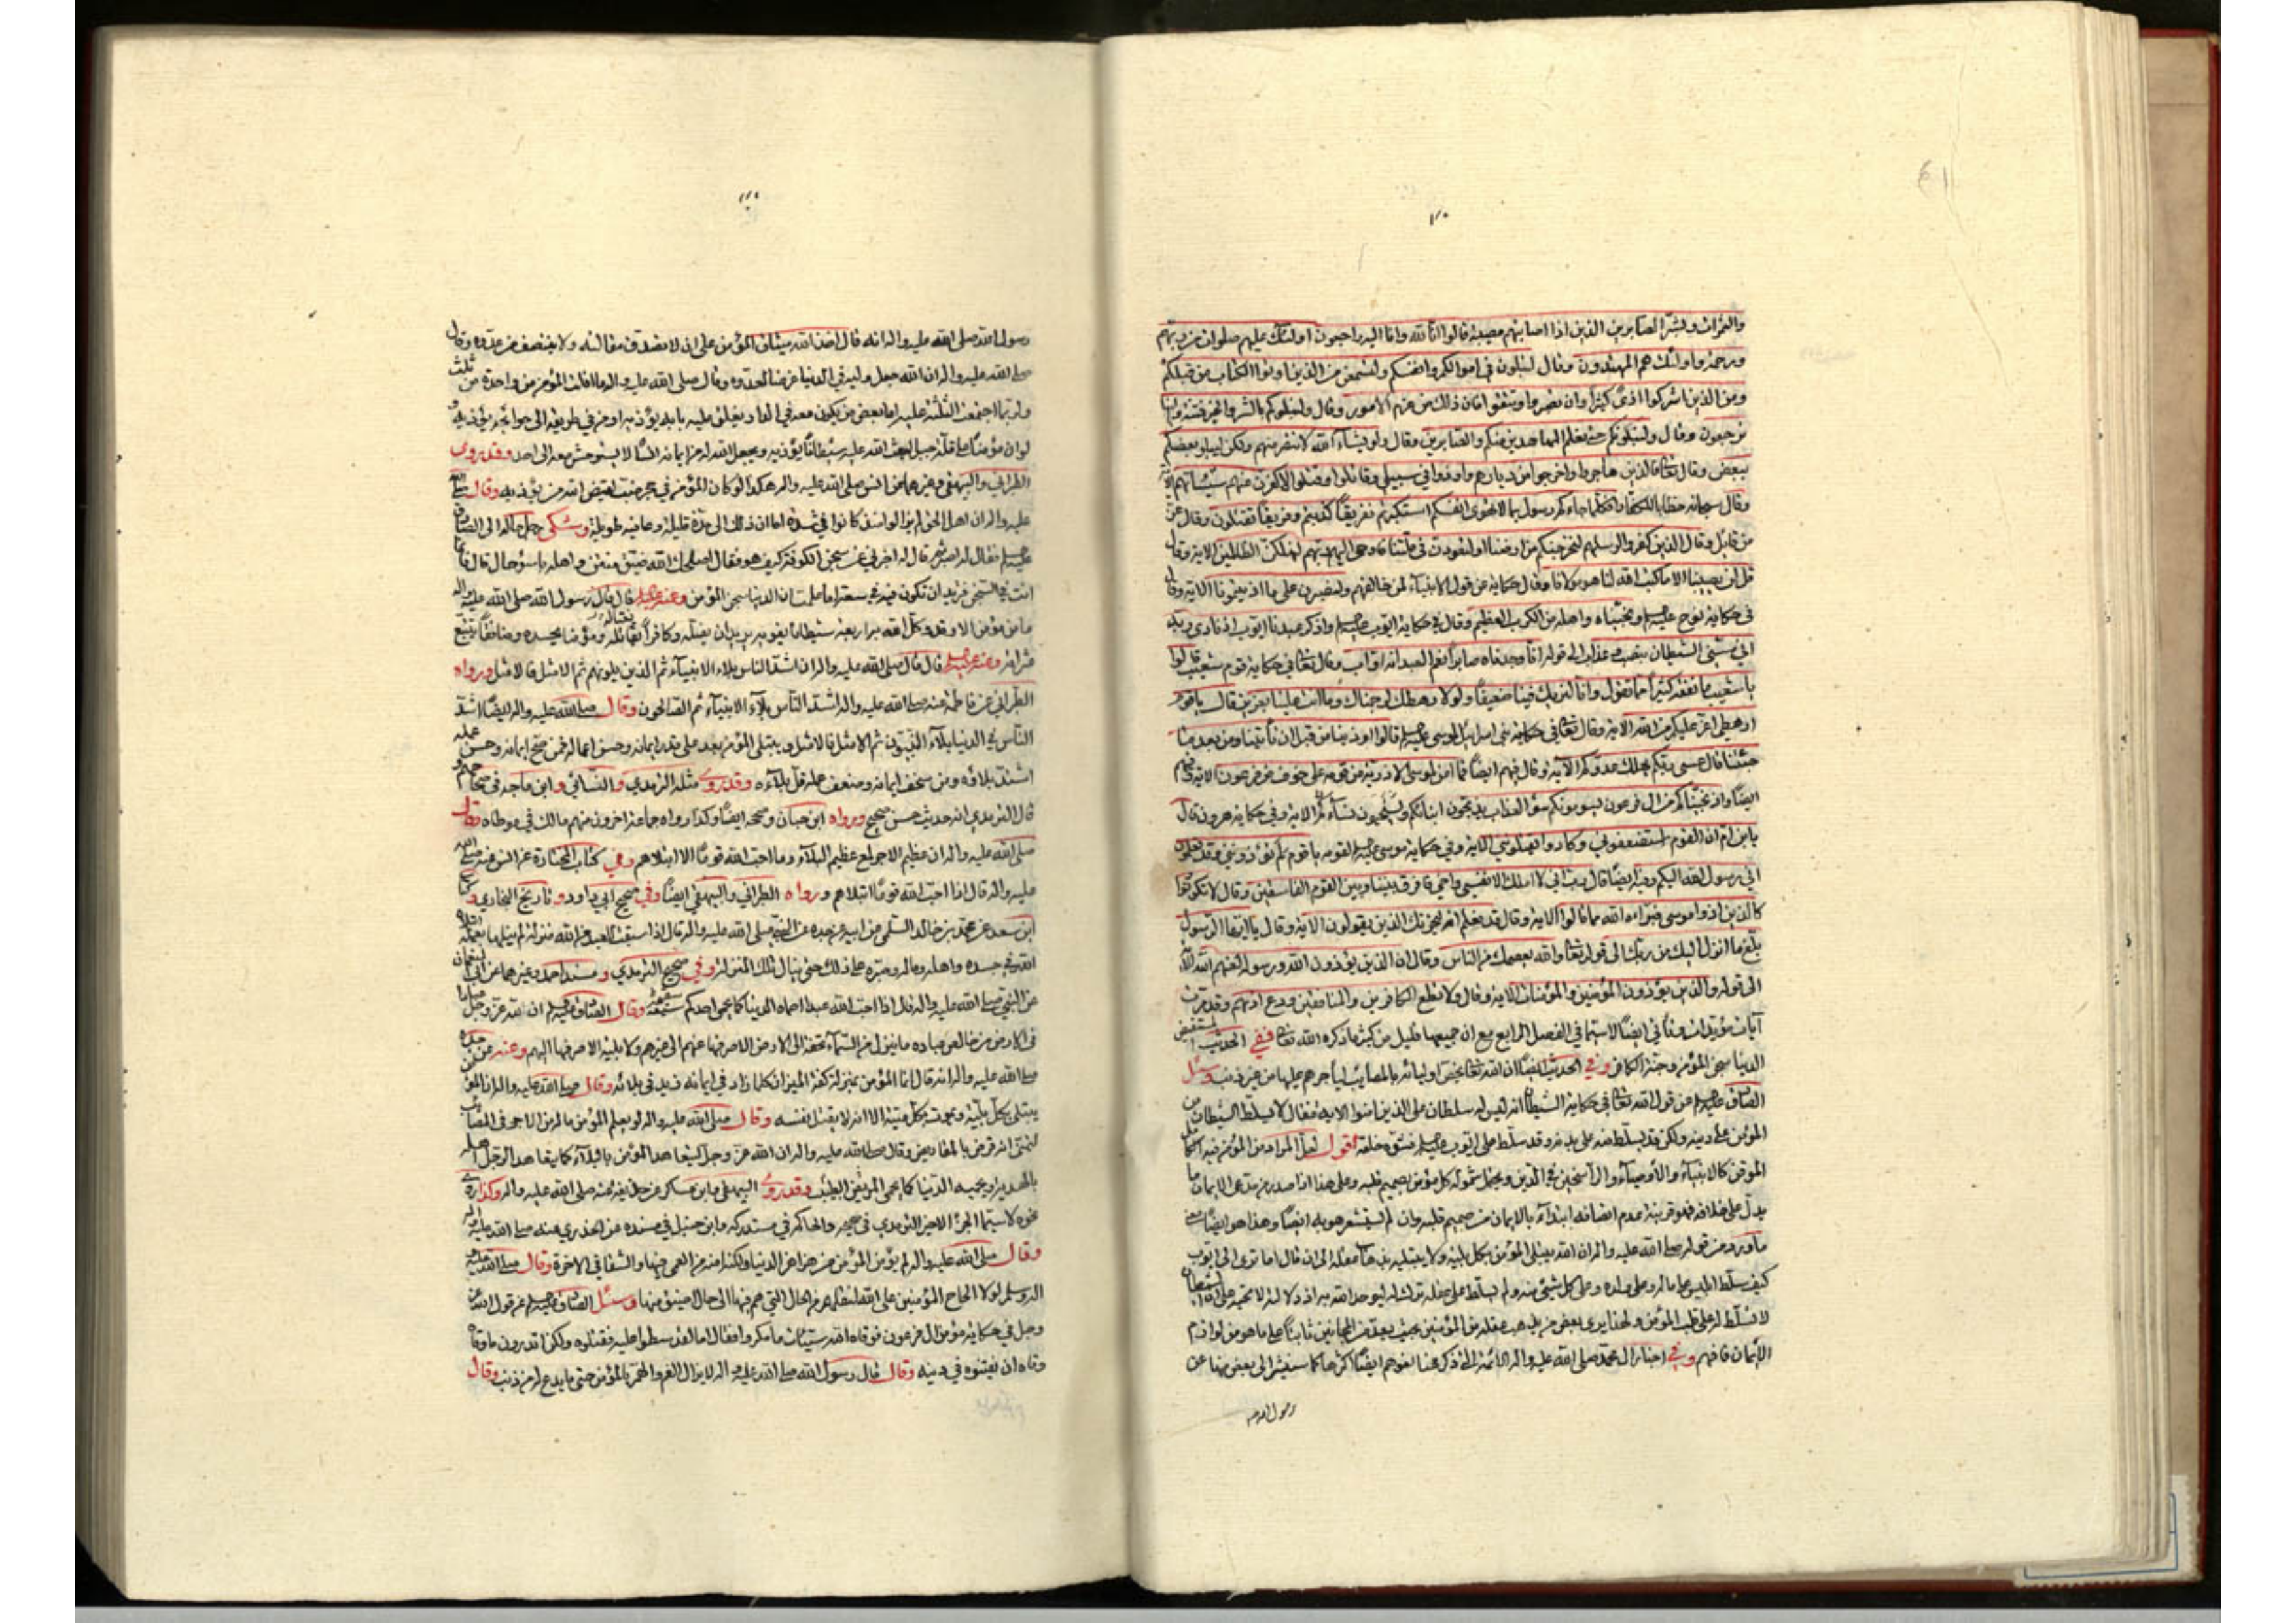 والثمرات وبشر الصابرين الذين اذا اصابتهم مصيبة قالوا انا لله وانا اليه راجعون اولئك عليهم صلوات من ربهم
ورحمة واولئك هم المهتدون وقال لتبلون في اموالكم وانفسكم ولتسمعن من الذين اوتوا الكتاب من قبلكم
ومن الذين اشركوا اذى كثيرا وان تصبروا وتتقوا فان ذلك من عزم الامور وقال ونبلوكم بالشر والخير فتنة والينا
ترجعون وقال ولنبلونكم حتى نعلم المجاهدين منكم والصابرين وقال ولو يشاء الله لانتصر منهم ولكن ليبلو بعضكم
ببعض وقال تعالى فالذين هاجروا واخرجوا من ديارهم واوذوا في سبيلي وقاتلوا وقتلوا لاكفرن عنهم سيئاتهم الآية
وقال سبحانه خطابا للكفار افكلما جاءكم رسول بما لا تهوى انفسكم استكبرتم ففريقا كذبتم وفريقا تقتلون وقال عز
من قائل وقال الذين كفروا لرسلهم لنخرجنكم من ارضنا او لتعودن في ملتنا فاوحى اليهم ربهم لنهلكن الظالمين الاية وقال
قل لن يصيبنا الا ما كتب الله لنا هو مولانا وقال حكاية عن قول الانبياء لمن خالفهم ولنصبرن على ما اذيتمونا الاية وقال
في حكاية نوح عليه السلم ونجيناه واهله من الكرب العظيم وقال في حكاية ايوب عليه السلم واذكر عبدنا ايوب اذ نادى ربه
اني مسني الشيطان بنصب وعذاب الى قوله انا وجدناه صابرا نعم العبد انه اواب وقال تعالى في حكاية قوم شعيب قالوا
يا شعيب ما نفقه كثيرا مما تقول وانا لنريك فينا ضعيفا ولولا رهطك لرجمناك وما انت علينا بعزيز قال يا قوم
ارهطي اعز عليكم من الله الاية وقال تعالى في حكاية بني اسرائيل لموسى عليه السلم قالوا اوذينا من قبل ان تأتينا ومن بعد ما
جئتنا قال عسى ربكم يهلك عدوكم الآية وقال فيهم ايضا فما امن لموسى الا ذرية من قومه على خوف من فرعون الاية وفيهم
ايضا واذ نجيناكم من ال فرعون يسومونكم سوء العذاب يذبحون ابنائكم ويستحيون نساءكم الاية وفي حكاية هرون قال
يا بن ام ان القوم استضعفوني وكادوا يقتلونني الاية وفي حكاية موسى عليه السلم لقومه يا قوم لم تؤذونني وقد تعلمون
اني رسول الله اليكم وفيه ايضا قال رب اني لا املك الا نفسي واخي فافرق بيننا وبين القوم الفاسقين وقال لا تكونوا
كالذين اذوا موسى فبرأه الله مما قالوا الاية وقال قد نعلم انه ليحزنك الذين يقولون الاية وقال يا ايها الرسول
بلغ ما انزل اليك من ربك الى قوله تعالى والله يعصمك من الناس وقال ان الذين يؤذون الله ورسوله لعنهم الله
الى قوله والذين يؤذون المؤمنين والمؤمنات الاية وقال ولا تطع الكافرين والمنافقين ودع اذيهم وقد مرت
آيات مؤيدات وتأتي ايضا لاسيما في الفصل الرابع مع ان جميعها قليل من كثير ما ذكره الله تعالى ففي الحديث المستفيض
الدنيا سجن المؤمن وجنة الكافر وفي الحديث ايضا ان الله تعالى يخص اوليائه بالمصايب ليأجرهم عليها من غير ذنب وسئل
الصادق عليه السلم عن قول الله تعالى في حكاية الشيطان انه ليس له سلطان على الذين امنوا الاية فقال لا يسلط الشيطان من
المؤمن على دينه ولكن قد يسلط منه على بدنه وقد سلط على ايوب عليه السلم فشوه خلقه اقول لعل المراد من المؤمن فيه الكامل
الموقن كالانبياء والاوصياء والراسخين في الدين ويحتمل شموله كل مؤمن بصميم قلبه وعلى هذا اذا صدر من مدعي الايمان ما
يدل على خلافه فهو قرينة عدم اتصافه ابتداء بالايمان من صميم قلبه وان لم يستشعر هو به ايضا وهذا هو ايضا معنى
ما ورد من قوله صلى الله عليه واله ان الله يبتلي المؤمن بكل بلية ولا يبتليه بذهاب عقله الى ان قال اما ترى الى ايوب
كيف سلط ابليس على ماله وعلى ولده وعلى كل شيئ منه ولم يسلط على عقله ترك له ليوحد الله به
لا تسلط له على قلب المؤمن ولهذا يرى بعض من يذهب عقله من المؤمنين بحيث يعد من المجانين ثابتا على ما هو من لوازم
الايمان فافهم وفي اخبار ال محمد صلى الله عليه واله الائمة
رسول الله صلى الله عليه واله انه قال اخذ الله ميثاق المؤمن على ان لا تصدق مقالته ولا ينتصف من عدوه وقال
صلى الله عليه واله ان الله جعل وليه في الدنيا غرضا لعدوه وقال صلى الله عليه واله ما افلت المؤمن من واحدة من ثلث
ولربما اجتمعت الثلثة عليه اما بعض من يكون معه في الدار يغلق عليه بابه يؤذيه او من في طريقه الى حوائجه يؤذيه
لو ان مؤمنا على قلة جبل لبعث الله عليه شيطانا يؤذيه ويجعل الله له من ايمانه انسا لا يستوحش معه الى احد وقد روى
الطبراني والبيهقي وغيرهما عن انس صلى الله عليه واله هكذا لو كان المؤمن في جحر ضب لقيض الله من يؤذيه وقال صلى الله
عليه واله ان اهل الحق لم يزالوا منذ كانوا في شدة اما ان ذلك الى مدة قليلة وعافية طويلة وشكى رجل حاله الى الصادق
عليه السلم فقال له اصبر ثم قال له اخبرني عن سجن الكوفة كيف هو فقال اصلحك الله ضيق منتن واهله باسوء حال قال فانما
انت في السجن فتريد ان تكون فيه في سعة اما علمت ان الدنيا سجن المؤمن وعنه عليه السلم قال قال رسول الله صلى الله عليه واله
ما من مؤمن الا وقد وكل الله به اربعة شيطانا يغويه يريد ان يضله وكافرا يقاتله ومؤمنا يحسده ومنافقا يتتبع
عثراته وعنه عليه السلم قال قال صلى الله عليه واله ان اشد الناس بلاء الانبياء ثم الذين يلونهم ثم الامثل فالامثل ورواه
الطبراني عن فاطمة عنه صلى الله عليه واله اشد الناس بلاء الانبياء ثم الصالحون وقال صلى الله عليه واله ايضا اشد
الناس في الدنيا بلاء النبيون ثم الامثل فالامثل ويبتلى المؤمن بعد على قدر ايمانه وحسن اعماله فمن صح ايمانه وحسن عمله
اشتد بلاؤه ومن سخف ايمانه وضعف عمله قل بلاءه وقد روى مثله الترمذي والنسائي وابن ماجه في صحاحهم
قال الترمذي انه حديث حسن صحيح ورواه ابن حبان وصححه ايضا وكذا رواه جماعة اخرون منهم مالك في موطاه وقال
صلى الله عليه واله ان عظيم الاجر لمع عظيم البلاء وما احب الله قوما الا ابتلاهم وفي كتاب الجنازة عن انس عنه صلى الله
عليه واله قال اذا احب الله قوما ابتلاهم ورواه الطبراني والبيهقي ايضا وفي صحيح ابي داود وتاريخ البخاري
ابن سعد عن محمد بن خالد السلمي عن ابيه عن جده عن النبي صلى الله عليه واله قال اذا سبقت للعبد من الله منزلة لم ينلها بعمله ابتلاه
الله في جسده واهله وماله وصبره على ذلك حتى ينال تلك المنزلة وفي صحيح الترمذي ومسند احمد وغيرهما عن
عن النبي صلى الله عليه واله قال اذا احب الله عبدا احماه الدنيا كما يحمي احدكم سقيمه وقال الصادق عليه السلم ان لله عز وجل
في الارض من خالص عباده ما ينزل من السماء تحفة الى الارض الا صرفها عنهم الى غيرهم ولا بلية الا صرفها اليهم وعنه عن جده
صلى الله عليه واله انه قال انما المؤمن بمنزلة كفة الميزان كلما زاد في ايمانه زيد في بلائه وقال صلى الله عليه واله ان المؤمن
يبتلى بكل بلية ويموت بكل ميتة الا انه لا يقتل نفسه وقال صلى الله عليه واله لو يعلم المؤمن ما له من الاجر في المصائب
لتمنى انه قرض بالمقاريض وقال صلى الله عليه واله ان الله عز وجل ليتعاهد المؤمن بالبلاء كما يتعاهد الرجل اهله
بالهدية ويحميه الدنيا كما يحمي المريض الطبيب وقد روى البيهقي وابن عساكر عن حذيفة عنه صلى الله عليه واله وكذا روى
نحوه لاسيما الجزء الاخير الترمذي في صحيحه والحاكم في مستدركه وابن حنبل في مسنده عن الخدري عنه صلى الله عليه واله
وقال صلى الله عليه واله لم يؤمن المؤمن من هزاهز الدنيا ولكنه امنه من العمى فيها والشقا في الاخرة وقال صلى الله عليه
اله وسلم لولا الحاح المؤمنين على الله لنقلهم من الحال التي هم فيها الى حال اضيق منها وسئل الصادق عليه السلم عن قول الله عز
وجل في حكاية مؤمن ال فرعون فوقاه الله سيئات ما مكروا فقال اما لقد سطوا عليه فقتلوه ولكن اتدرون ما وقاه
وقاه ان يفتنوه في دينه وقال قال رسول الله صلى الله عليه واله لا يزال الغم والهم بالمؤمن حتى ما يدع له من ذنب وقال